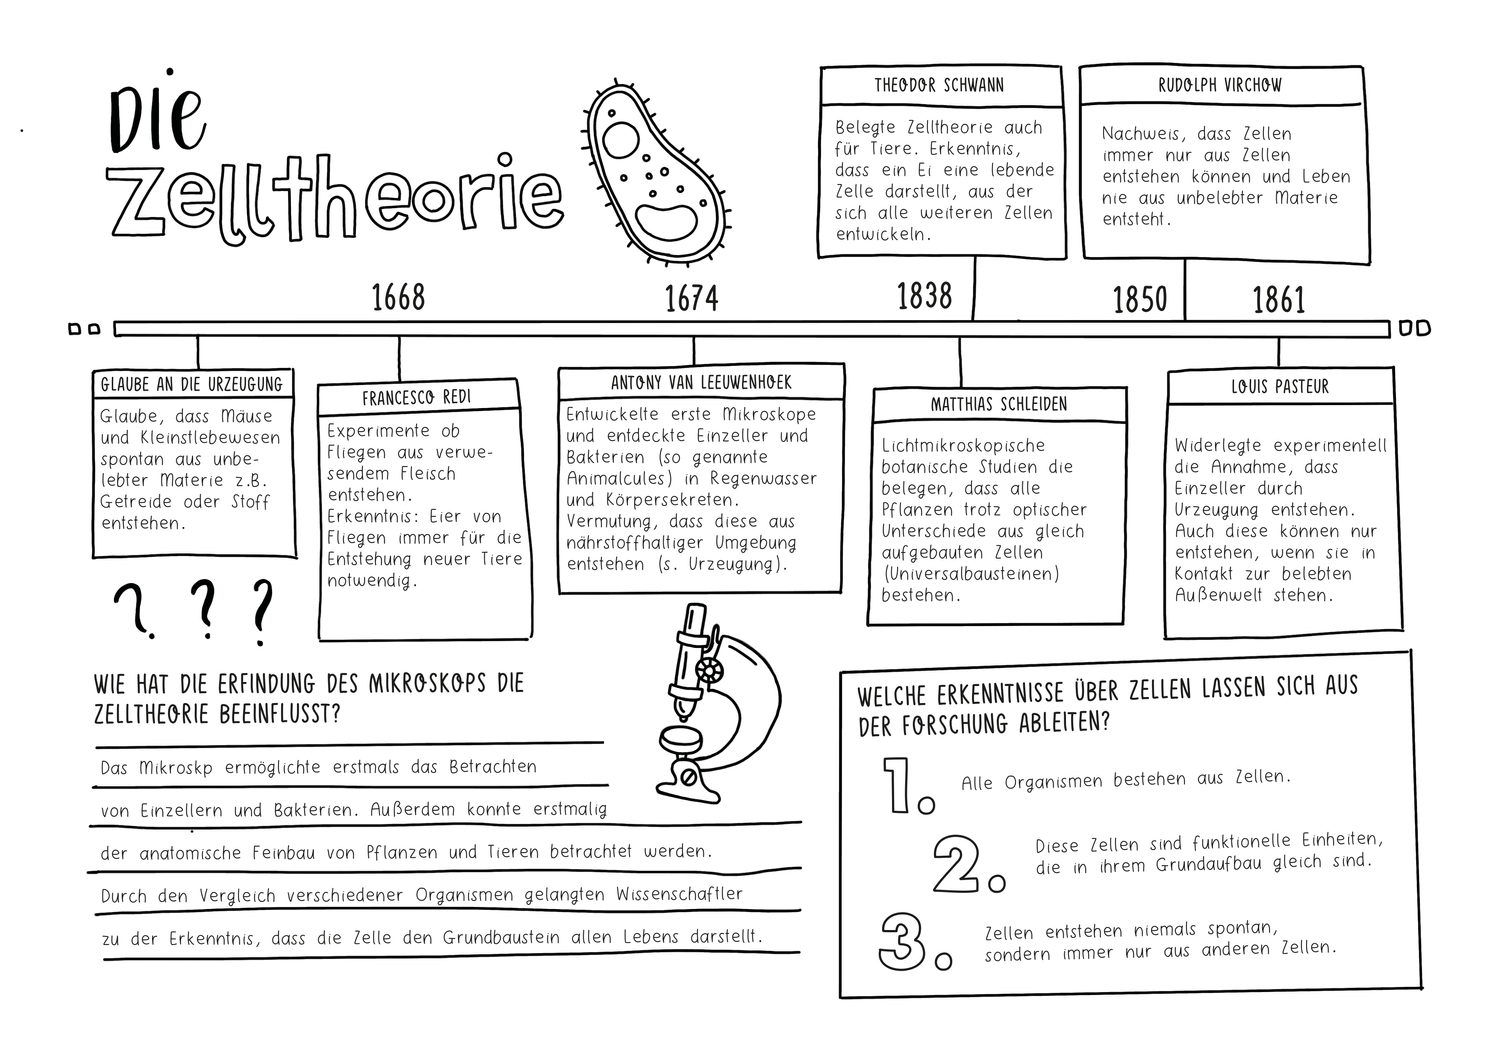 Die
Zelltheorie
THEODOR SCHWANN
Belegte Zelltheorie auch
für Tiere. Erkenntnis,
dass ein Ei eine lebende
Zelle darstellt, aus der
sich alle weiteren Zellen
entwickeln.
RUDOLPH VIRCHOW
Nachweis, dass Zellen
immer nur aus Zellen
entstehen können und Leben
nie aus unbelebter Materie
entsteht.
1668
1674
1838
1850
1861
GLAUBE AN DIE URZEUGUNG
Glaube, dass Mäuse
und Kleinstlebewesen
spontan aus unbe-
lebter Materie z.B.
Getreide oder Stoff
entstehen.
? ? ?
FRANCESCO REDI
Experimente ob
Fliegen aus verwe-
sendem Fleisch
entstehen.
Erkenntnis: Eier von
Fliegen immer für die
Entstehung neuer Tiere
notwendig.
ANTONY VAN LEEUWENHOEK
Entwickelte erste Mikroskope
und entdeckte Einzeller und
Bakterien (so genannte
Animalcules) in Regenwasser
und Körpersekreten.
Vermutung, dass diese aus
nährstoffhaltiger Umgebung
entstehen (s. Urzeugung).
MATTHIAS SCHLEIDEN
Lichtmikroskopische
botanische Studien die
belegen, dass alle
Pflanzen trotz optischer
Unterschiede aus gleich
aufgebauten Zellen
(Universalbausteinen)
bestehen.
LOUIS PASTEUR
Widerlegte experimentell
die Annahme, dass
Einzeller durch
Urzeugung entstehen.
Auch diese können nur
entstehen, wenn sie in
Kontakt zur belebten
Außenwelt stehen.
WIE HAT DIE ERFINDUNG DES MIKROSKOPS DIE
ZELLTHEORIE BEEINFLUSST?
Das Mikroskp ermöglichte erstmals das Betrachten
von Einzellern und Bakterien. Außerdem konnte erstmalig
der anatomische Feinbau von Pflanzen und Tieren betrachtet werden.
Durch den Vergleich verschiedener Organismen gelangten Wissenschaftler
zu der Erkenntnis, dass die Zelle den Grundbaustein allen Lebens darstellt.
WELCHE ERKENNTNISSE ÜBER ZELLEN LASSEN SICH AUS
DER FORSCHUNG ABLEITEN?
1. Alle Organismen bestehen aus Zellen.
2. Diese Zellen sind funktionelle Einheiten,
die in ihrem Grundaufbau gleich sind.
3. Zellen entstehen niemals spontan,
sondern immer nur aus anderen Zellen.